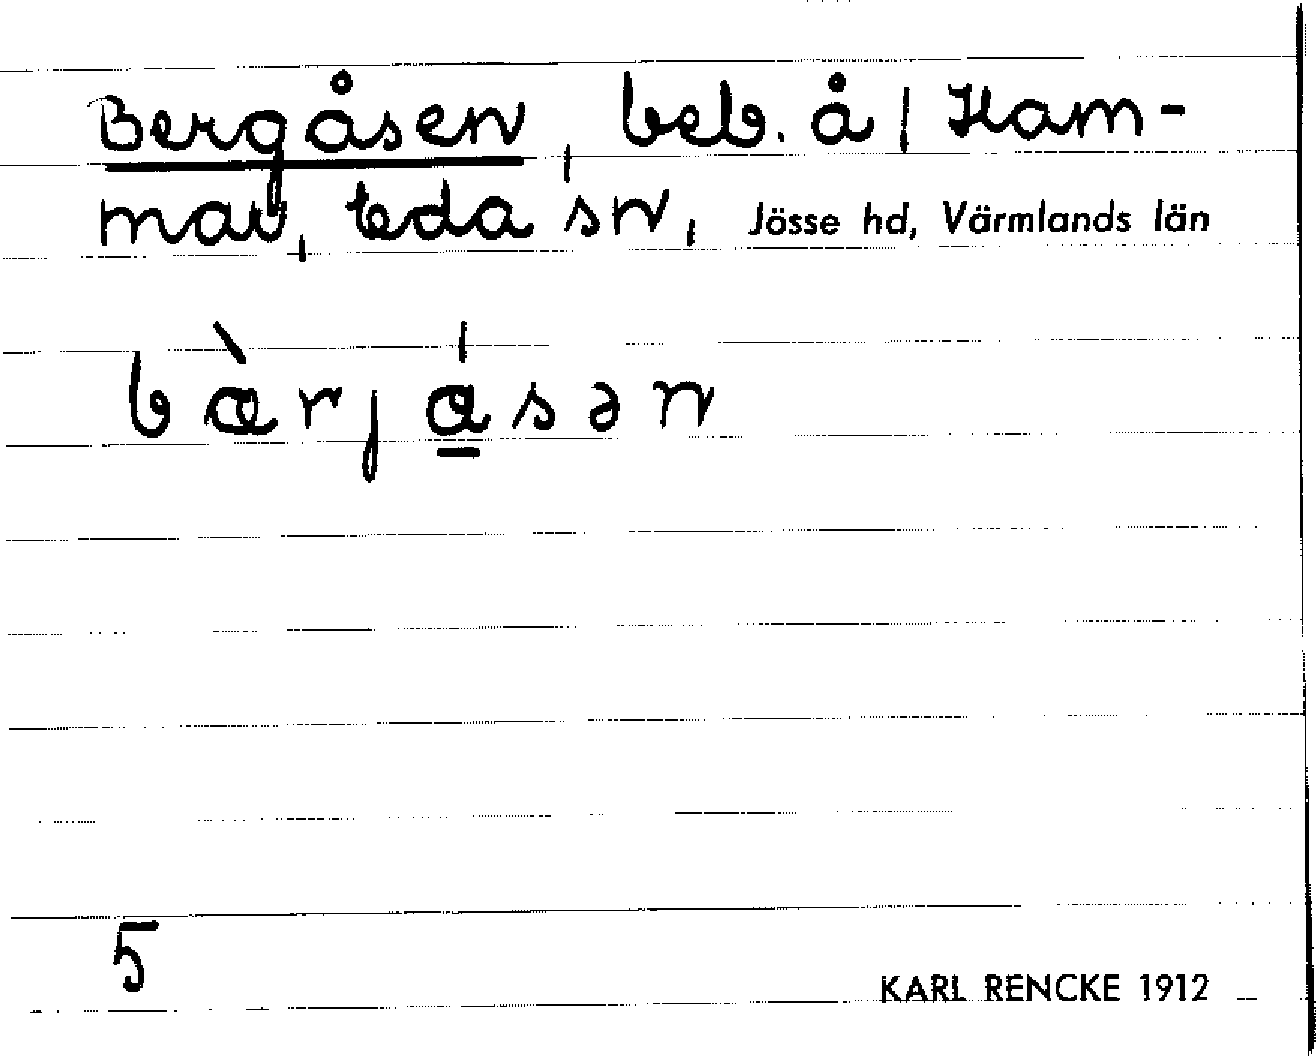 Bergåsen, beb. å / Ham-
mar, Eda sn, Jösse hd, Värmlands län
bæ̀rjɑ̲́sən
5
KARL RENCKE 1912